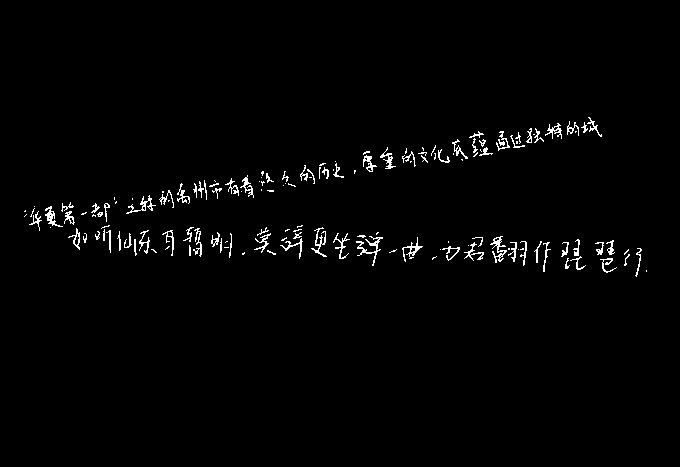 “华夏第一都”之称的禹州市有着悠久的历史，厚重的文化底蕴通过独特的城
如听仙乐耳暂明，莫辞更坐弹一曲，为君翻作琵琶行.